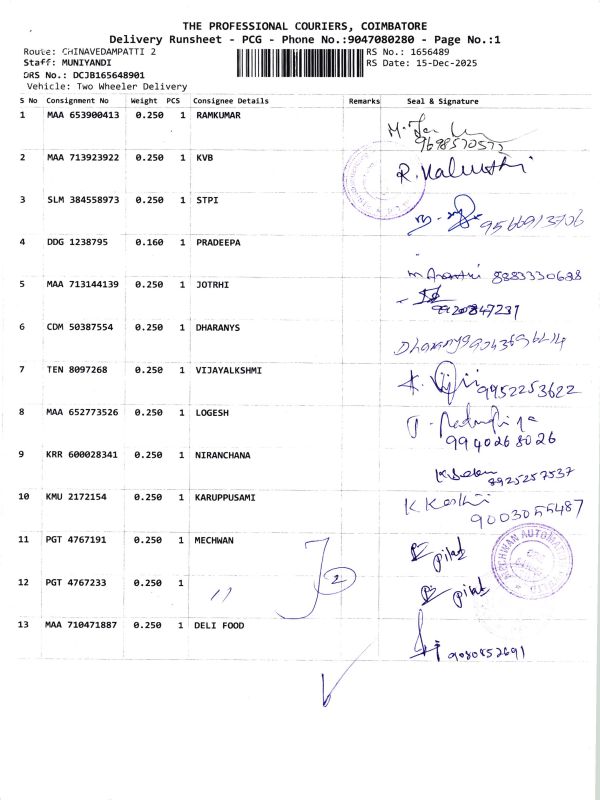 THE PROFESSIONAL COURIERS, COIMBATORE
Delivery Runsheet - PCG - Phone No.:9047080280 - Page No.:1
Route: CHINAVEDAMPATTI 2
RS No.: 1656489
Staff: MUNIYANDI
RS Date: 15-Dec-2025
DRS No.: DCJB165648901
Vehicle: Two Wheeler Delivery
S No Consignment No Weight PCS Consignee Details Remarks Seal & Signature
1 MAA 653900413 0.250 1 RAMKUMAR
9698570572
2 MAA 713923922 0.250 1 KVB
3 SLM 384558973 0.250 1 STPI
9566913706
4 DDG 1238795 0.160 1 PRADEEPA
8883330628
5 MAA 713144139 0.250 1 JOTRHI
6 CDM 50387554 0.250 1 DHARANYS
7 TEN 8097268 0.250 1 VIJAYALKSHMI
K. Viji 9952253622
8 MAA 652773526 0.250 1 LOGESH
9940268026
9 KRR 600028341 0.250 1 NIRANCHANA
8925257537
10 KMU 2172154 0.250 1 KARUPPUSAMI
9003055487
11 PGT 4767191 0.250 1 MECHWAN
2
12 PGT 4767233 0.250 1 "
13 MAA 710471887 0.250 1 DELI FOOD
9080852691